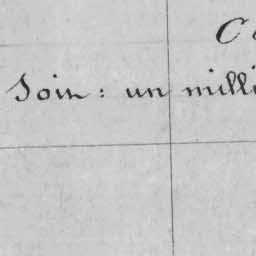 C
Soin : un milli